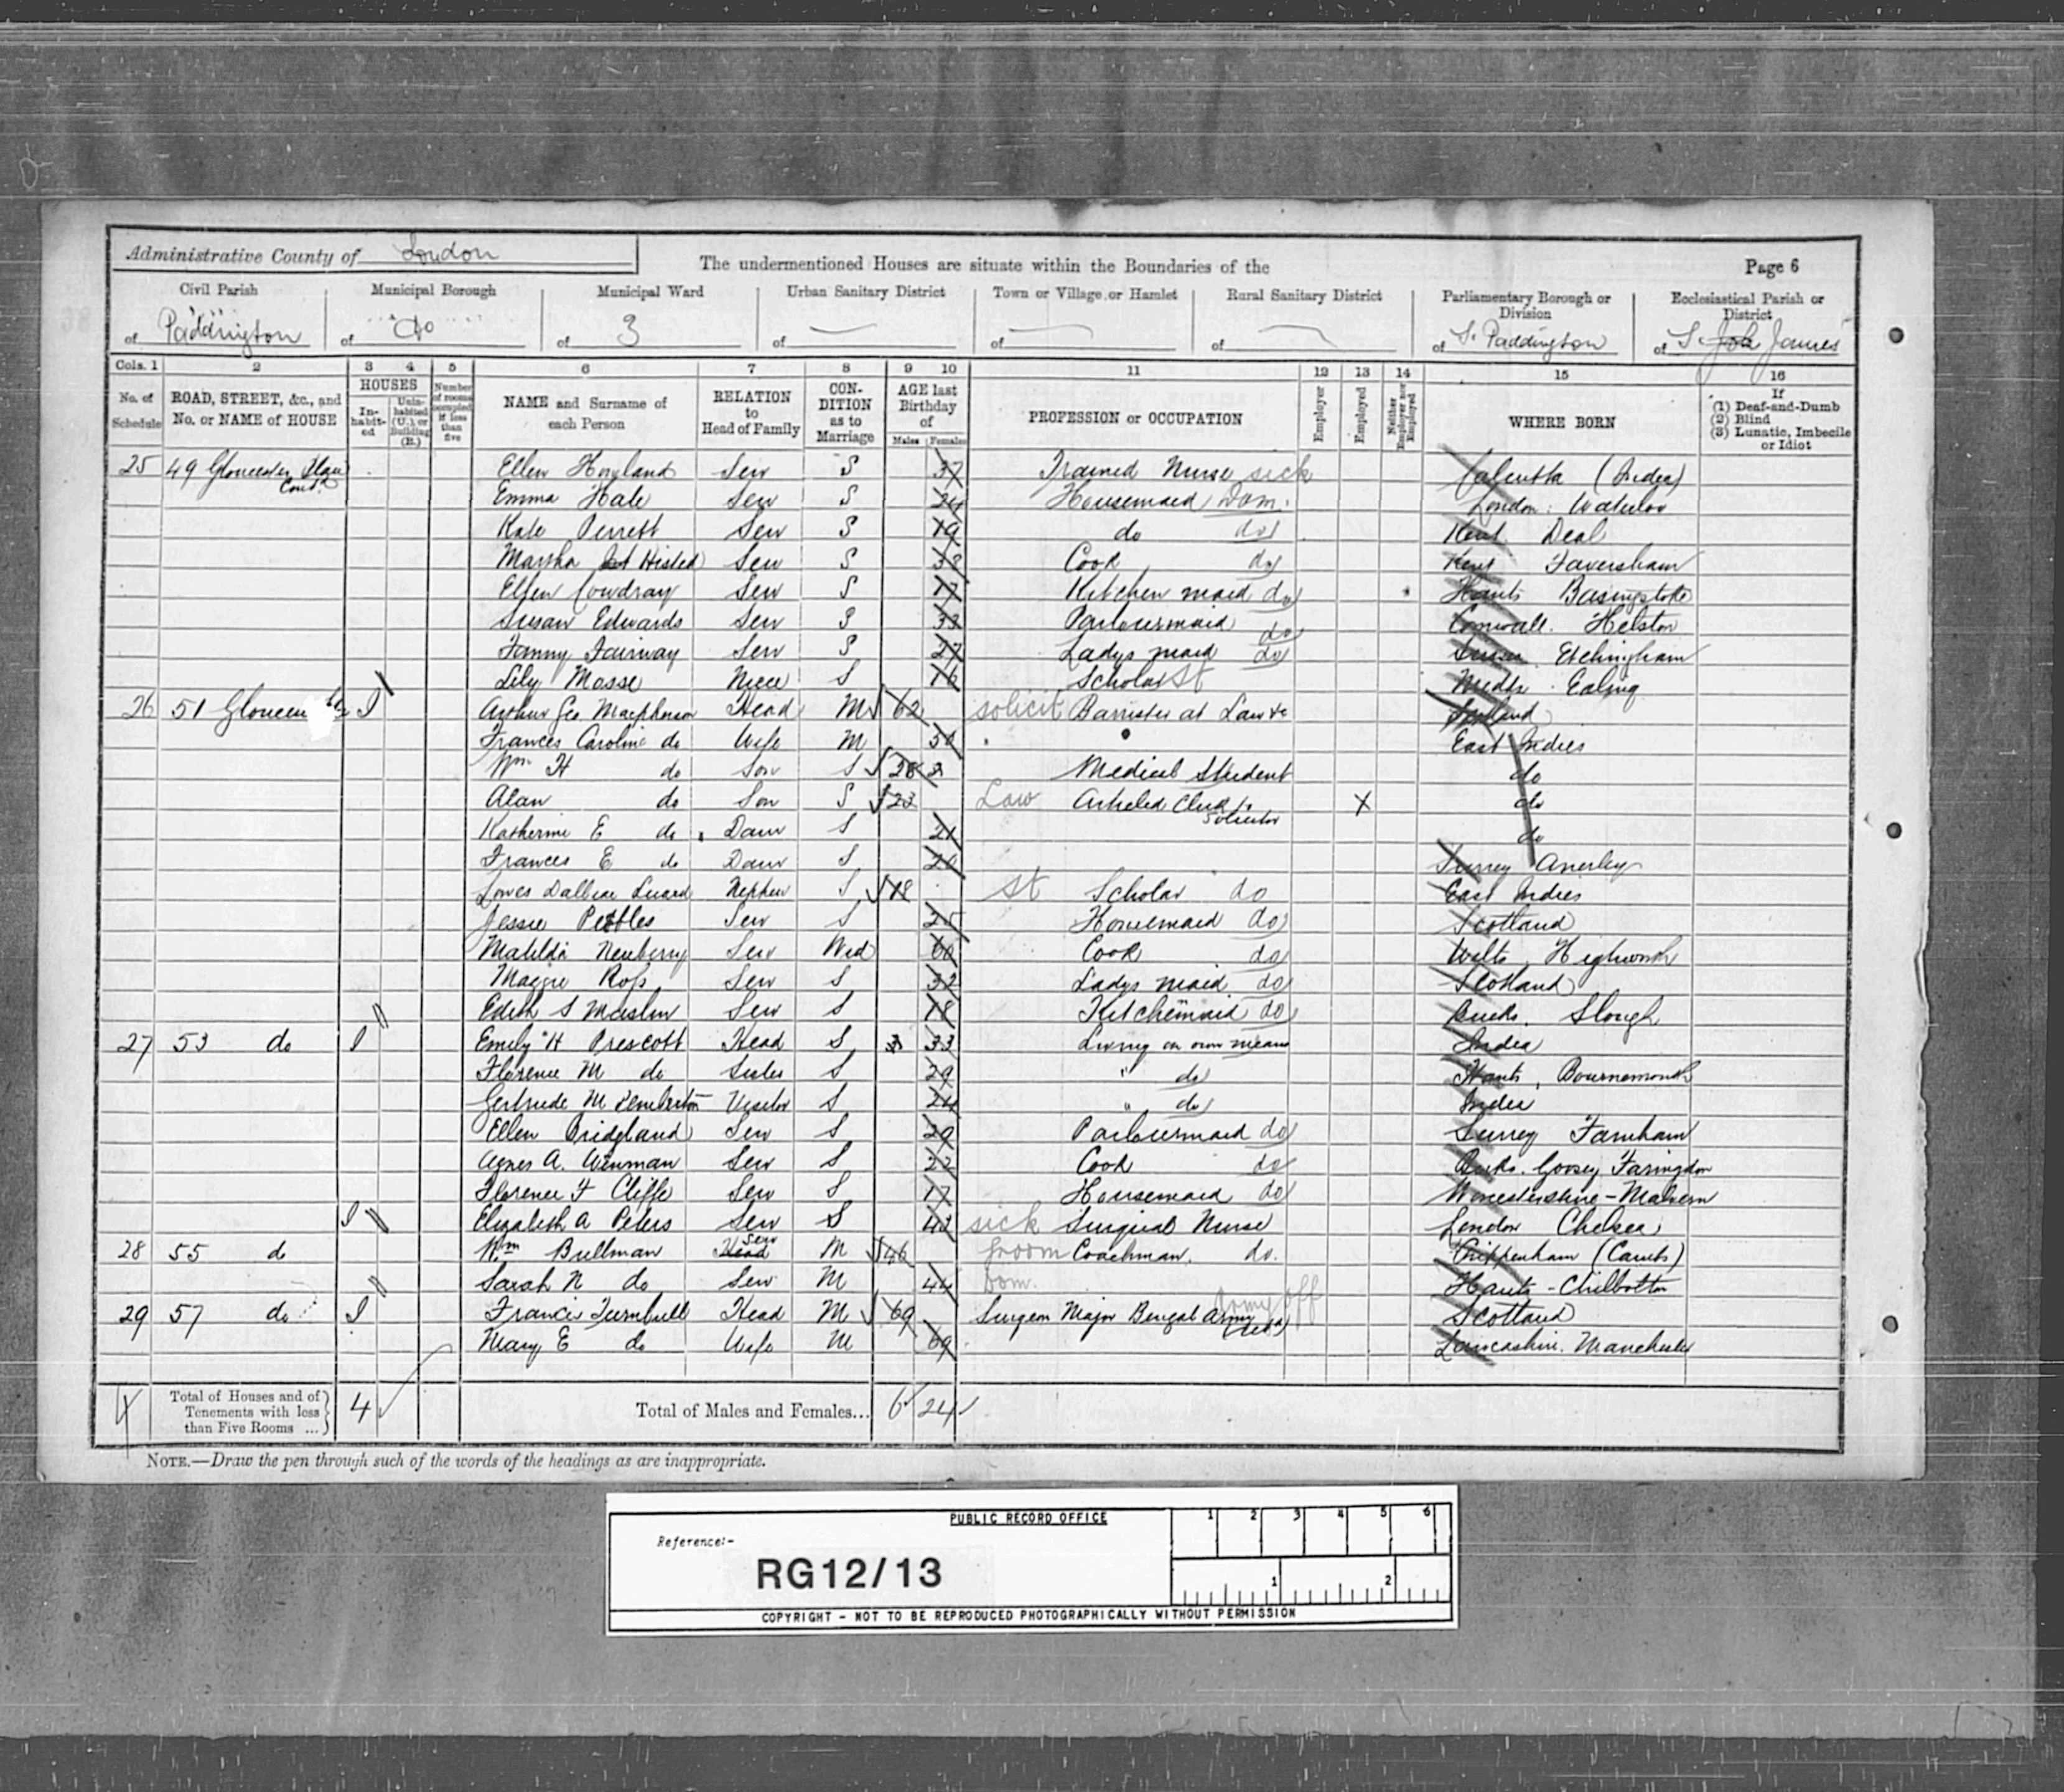 Administrative County of London
The undermentioned Houses are situate within the Boundaries of the
Page 6
Civil Parish of Paddington
Municipal Borough of do
Municipal Ward of 3
Urban Sanitary District of —
Town or Village or Hamlet of —
Rural Sanitary District of —
Parliamentary Borough or Division of S. Paddington
Ecclesiastical Parish or District of S. Joh James
Cols. 1 2 3 4 5 6 7 8 9 10 11 12 13 14 15 16
No. of Schedule
ROAD, STREET, &c., and No. or NAME of HOUSE
HOUSES
In-habit-ed
Unin-habited (U.), or Building (B.)
Number of rooms occupied if less than five
NAME and Surname of each Person
RELATION to Head of Family
CON-DITION as to Marriage
AGE last Birthday of
Males Females
PROFESSION or OCCUPATION
Employer
Employed
Neither Employer nor Employed
WHERE BORN
If (1) Deaf-and-Dumb (2) Blind (3) Lunatic, Imbecile or Idiot
25 49 Gloucester Contd. Ellen Serv S 37 Trained Nurse sick Calcutta (India)
Emma Hale Serv S 24 Housemaid Dom. London: Waterloo
Kate Perrett Serv S 19 do do Kent Deal
Martha Histed Serv S Cook do Kent Faversham
Ellen Cowdray Serv S 17 Kitchen maid do Hants Basingstoke
Susan Edwards Serv S Parlourmaid do Cornwall. Helston
Fanny Fairway Serv S 27 Ladys maid do Sussex Etchingham
Lily Mosse Niece S 16 Scholar St Middx. Ealing
26 51 I Arthur Geo Macpherson Head M 62 solicit Barrister at Law Scotland
Frances Caroline do Wife M East Indies
Wm H do Son S Medical Student do
Alan do Son S 23 Law Articled Clerk to Solicitor X do
Katherine E do Daur S 21 do
Frances E do Daur S 20 Surrey Anerley
Lowes Dalbiac Luard Nephew S 18 St Scholar do East Indies
Jessie Peebles Serv S 25 Housemaid do Scotland
Matilda Newberry Serv Wid 60 Cook do Wilts Highworth
Maggie Ross Serv S 32 Ladys maid do Scotland
Edith S Maslin Serv S 18 Kitchenmaid do Bucks. Slough
27 53 do I Emily H Prescott Head S 33 Living on own means India
Florence M do Sister S 29 " do Hants, Bournemouth
Gertrude M Pemberton Visitor S 24 " do India
Ellen Bridgland Serv S 29 Parlourmaid do Surrey Farnham
Agnes A. Winman Serv S 22 Cook do Berks. Goosey Faringdon
Florence F Cliffe Serv S 17 Housemaid do Worcestershire - Malvern
I Elizabeth A Peters Serv S 43 sick Surgical Nurse London Chelsea
28 55 do Wm Bullman Head Serv M 46 groom Coachman. do. Chippenham (Cambs)
Sarah N do Serv M 44 Dom. Hants - Chilbolton
29 57 do I Francis Turnbull Head M 69 Surgeon Major Bengal Army (retd) Army off Scotland
Mary E do Wife M 69 Lancashire. Manchester
4 Total of Houses and of Tenements with less than Five Rooms ... 4
Total of Males and Females... 6 24
NOTE.—Draw the pen through such of the words of the headings as are inappropriate.
PUBLIC RECORD OFFICE
1 2 3 4 5 6
Reference:-
RG12/13
1 2
COPYRIGHT - NOT TO BE REPRODUCED PHOTOGRAPHICALLY WITHOUT PERMISSION